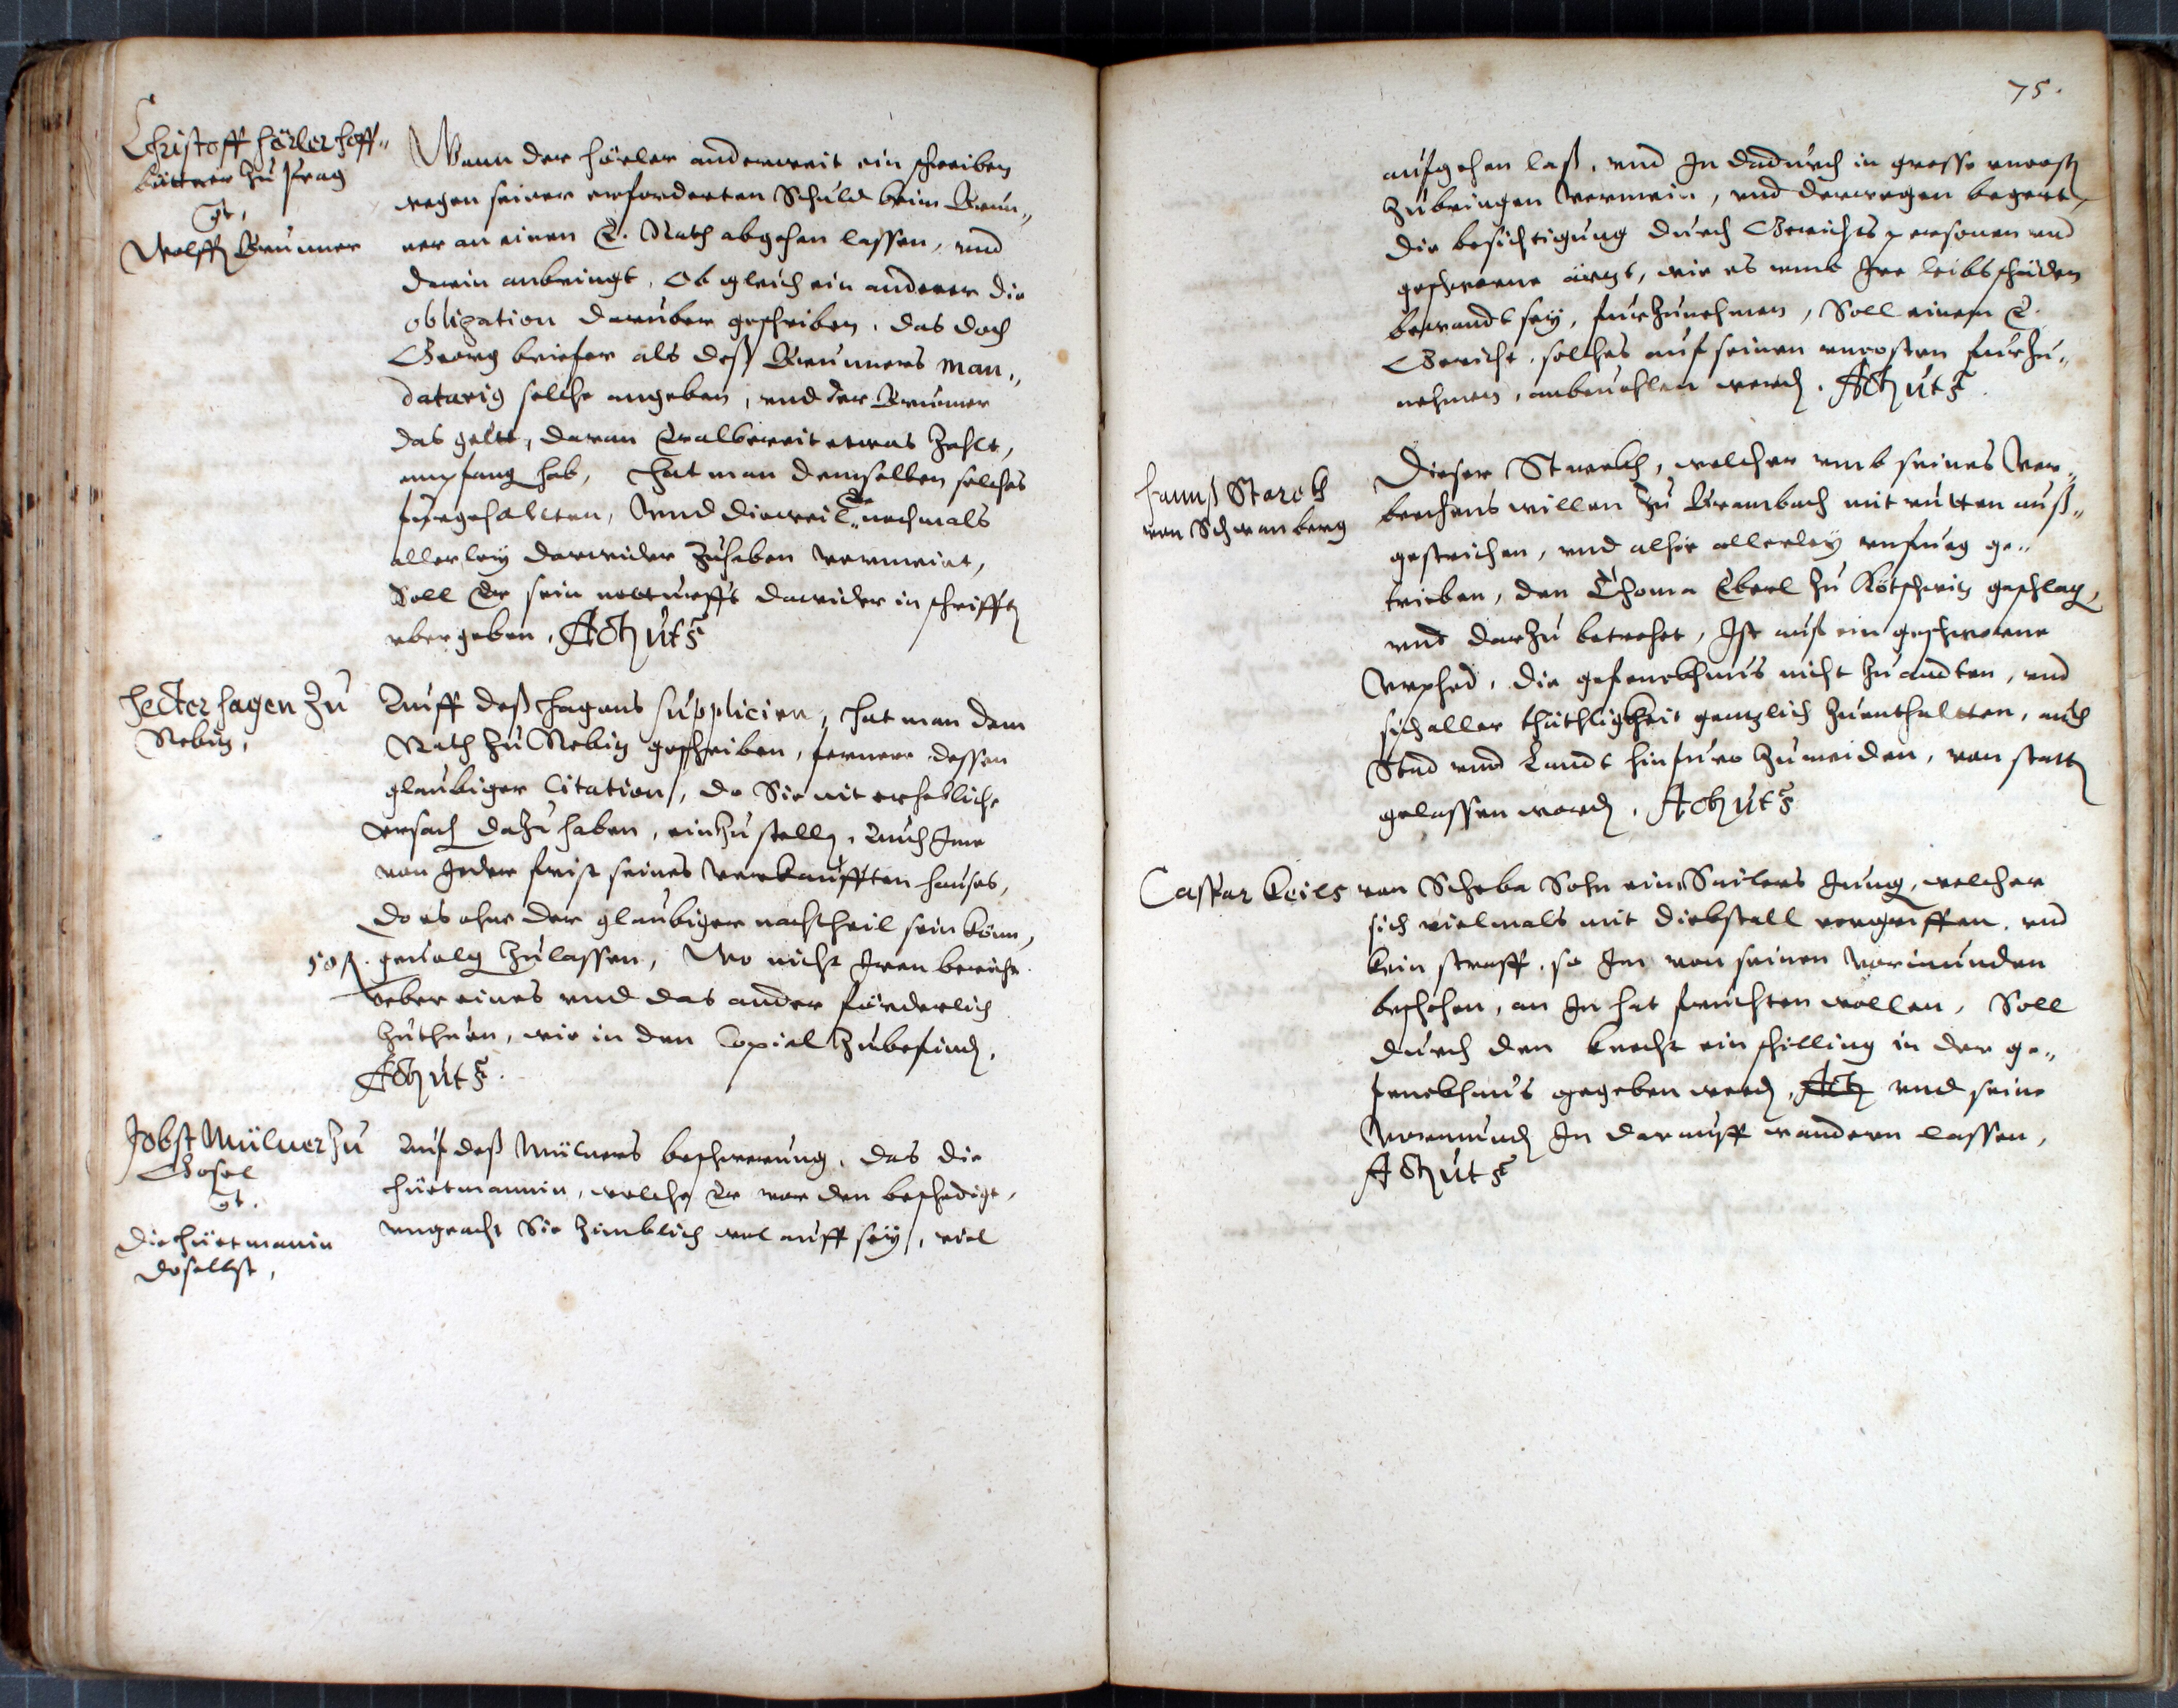 Christoff Härler Hoff„
büttner zu Prag
Ct.
Wolff Brunner
Wann der Härler anderweit ein schreiben
wegen seiner erforderten Schuld beim Brun„
ner an einen E. Rath abgehen lassen, vnd
darin anbringt, Ob gleich ein anderer die
obligation daruber geschriben, das doch
Georg briefer als deß Brunners man„
datarig solche angeben, vnd der Brunner
das gellt, daran Er albereit etwas Zahlt,
empfang hab, Hat man demselben solches
furgehaltten, Vnnd dieweil Er nochmals
allerley darwider Zuhaben vermeint,
Soll Er sein notturfft dawider in schrifften
vbergeben. Actum ut s
Hector Hagen Zu
Rebitz,
Auff deß Hagens suppliciren, Hat man dem
Rath Zu Rebitz geschriben, fernere dessen
glaubiger Citation, do Sie nit erhebliche
vrsach dazu haben, einzustellen, Auch Jme
von Jeder frist seines verkaufften hauses,
do es ohne der glaubiger nachtheil sein könn,
50 fl. geuolg Zulassen, Wo nicht Jren bericht
veber eines vnd das ander fürderlich
Zuthuen, wie in den Copial Zubefinden,
Actum ut s.
Jobst Mülner Zu
Gosel
Ct.
Die Hüetmanin
doselbst,
Auf deß Mülners beschwerung, das die
Hüetmannin, welche Er vor den beschedigt,
vngeacht Sie Zimblich wol auff sey, viel
75.
aufgehen laß, vnd Jn dadurch in grosse vncosten
Zubringen vermein, vnd derwegen begert,
die besichtigung durch Gerichts personen vnd
geschworne ärtzt, wie es vmb Jre leibsschäden
bewandt sey, furzunehmen, Soll einem E.
Gericht, solches auf seinen vncosten furzu„
nehmen, anbeuohlen werden. Actum ut s.
Hannß Starckh
von Schwanberg
Dieser Starckh, welcher vmb seines Ver„
brechens willen Zu Brambach mit rutten auß„
gestrichen, vnd alhie allerley vnfueg ge„
trieben, den Thoma Eberl Zu Kötschwitz geschlagen,
vnd darzu betrohet, Jst auf ein geschworne
Vrphed, die gefencknus nicht zu andten, vnd
sich aller thätligkheit gentzlich zuenthaltten, auch
Stad vnd Landt hinfuro Zumeiden, von statten
gelassen worden. Actum ut s
Caspar Keils von Scheba Sohn eins Seilers Jung, welcher
sich vielmals mit diebstall vergriffen, vnd
kein straff, so Jm von seinen Vormunden
beschehen, an Jn hat fruchten wollen, Soll
durch den knecht ein schilling in der ge„
fencknus gegeben werden, vnd seine
Vormunden Jn darauff wandern lassen,
Actum ut s